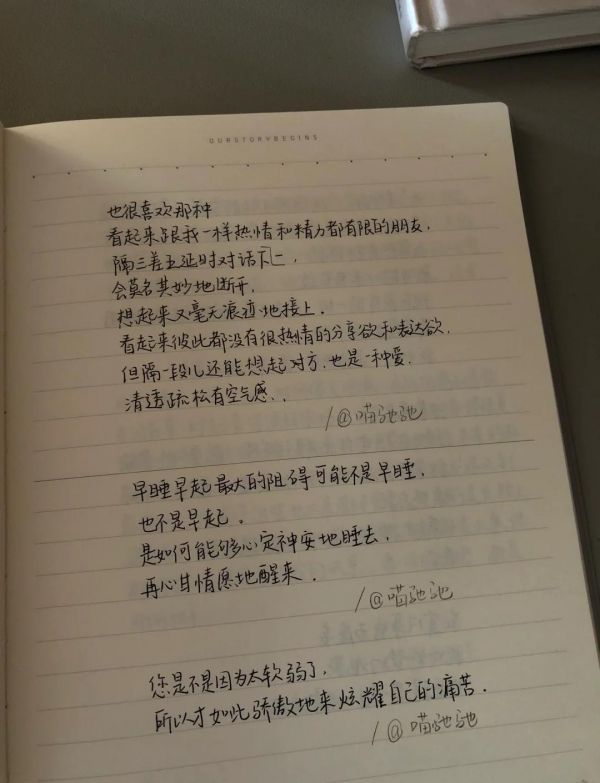 OURSTORYBEGINS
也很喜欢那种
看起来跟我一样热情和精力都有限的朋友,
隔三差五延时对话
会莫名其妙地断开,
想起来又毫无痕迹地接上.
看起来彼此都没有很热情的分享欲和表达欲,
但隔一段儿还能想起对方,也是一种爱.
清透疏松有空气感..
/@喵驰驰
早睡早起最大的阻碍可能不是早睡,
也不是早起。
是如何能够心定神安地睡去,
再心甘情愿地醒来.
/@喵驰驰
您是不是因为太软弱了,
所以才如此骄傲地来炫耀自己的痛苦.
/@喵驰驰